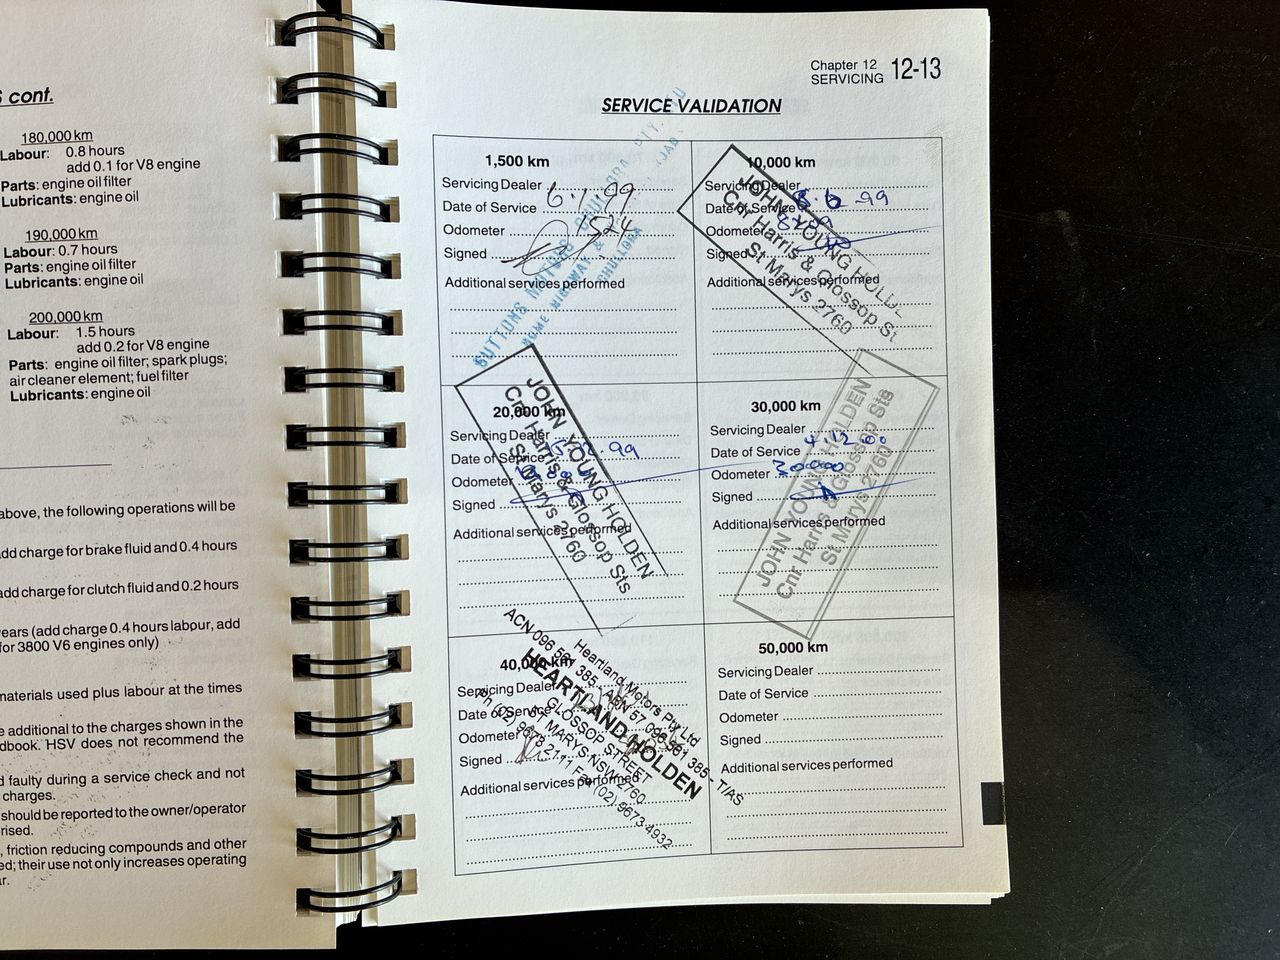 S cont.
180,000 km
Labour: 0.8 hours
add 0.1 for V8 engine
Parts: engine oil filter
Lubricants: engine oil
190,000 km
Labour: 0.7 hours
Parts: engine oil filter
Lubricants: engine oil
200,000 km
Labour: 1.5 hours
add 0.2 for V8 engine
Parts: engine oil filter; spark plugs;
air cleaner element; fuel filter
Lubricants: engine oil
above, the following operations will be
add charge for brake fluid and 0.4 hours
add charge for clutch fluid and 0.2 hours
ears (add charge 0.4 hours labour, add
for 3800 V6 engines only)
materials used plus labour at the times
e additional to the charges shown in the
dbook. HSV does not recommend the
d faulty during a service check and not
charges.
should be reported to the owner/operator
rised.
, friction reducing compounds and other
ed; their use not only increases operating
r.
Chapter 12
SERVICING 12-13
SERVICE VALIDATION
1,500 km
Servicing Dealer
Date of Service 6.1.99
Odometer 1524
Signed
Additional services performed
SUTTONS MOTORS CHULLORA PTY.
HUME HIGHWAY &
CHULLORA
10,000 km
Servicing Dealer
Date of Service 8.6.99
Odometer
Signed
Additional services performed
JOHN YOUNG HOLD
Cnr Harris & Glossop St
St Marys 2760
20,000 km
Servicing Dealer
Date of Service 99
Odometer
Signed
Additional services performed
JOHN YOUNG HOLDEN
Cnr Harris & Glossop Sts
St Marys 2760
30,000 km
Servicing Dealer
Date of Service 4.12.00
Odometer 30000
Signed
Additional services performed
JOHN YOUNG HOLDEN
Cnr Harris & Glossop Sts
St Marys 2760
40,000 km
Servicing Dealer
Date of Service
Odometer
Signed
Additional services performed
Heartland Motors Pty Ltd
ACN 096 561 385 ABN 57 096 561 385 - T/AS
HEARTLAND HOLDEN
GLOSSOP STREET
ST MARYS NSW 2760
Ph (02) 9673 2111 Fax (02) 9673 4932
50,000 km
Servicing Dealer
Date of Service
Odometer
Signed
Additional services performed